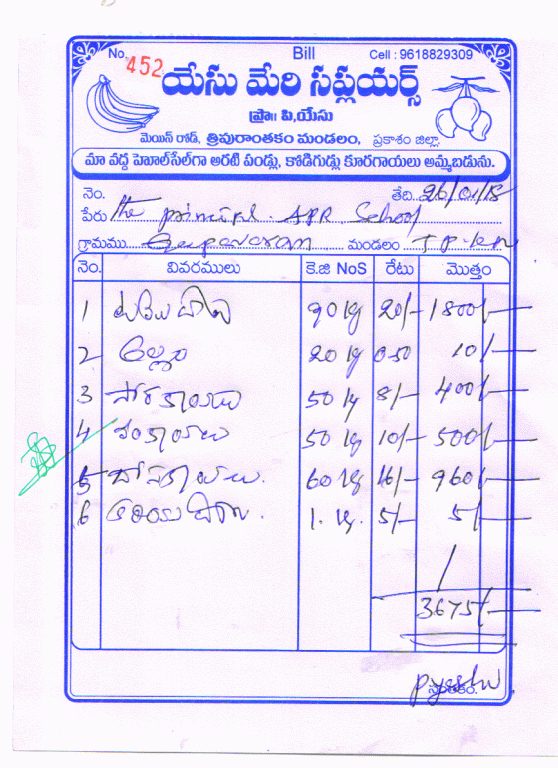 No. 452 Bill Cell : 9618829309
యేసు మేరి సప్లయర్స్
ప్రొ॥ పి.యేసు
మెయిన్ రోడ్, త్రిపురాంతకం మండలం, ప్రకాశం జిల్లా.
మా వద్ద హెూల్‌సేల్‌గా అరటి పండ్లు, కోడిగుడ్లు కూరగాయలు అమ్మబడును.
నెం. తేది. 26/01/18
పేరు The principal. APR School
గ్రామము మండలం
నెం. వివరములు కె.జి NoS రేటు మొత్తం
1 90 kg 20/- 1800/-
2 అల్లం 20 kg 0-50 10/-
3 సోరకాయలు 50 kg 8/- 400/-
4 వంకాయలు 50 kg 10/- 500/-
5 దోసకాయలు. 60 kg 16/- 960/-
6 1. kg. 5/- 5/-
3675/-
pyeshu
సంతకం.